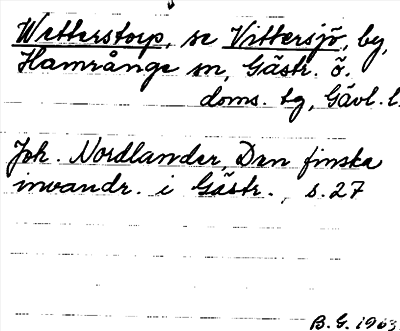 Wetterstorp, se Vittersjö, by,
Hamrånge sn, Gästr. ö.
doms. tg, Gävl. l.
Joh. Nordlander, Den finska
invandr. i Gästr., s. 27
B. G. 1963